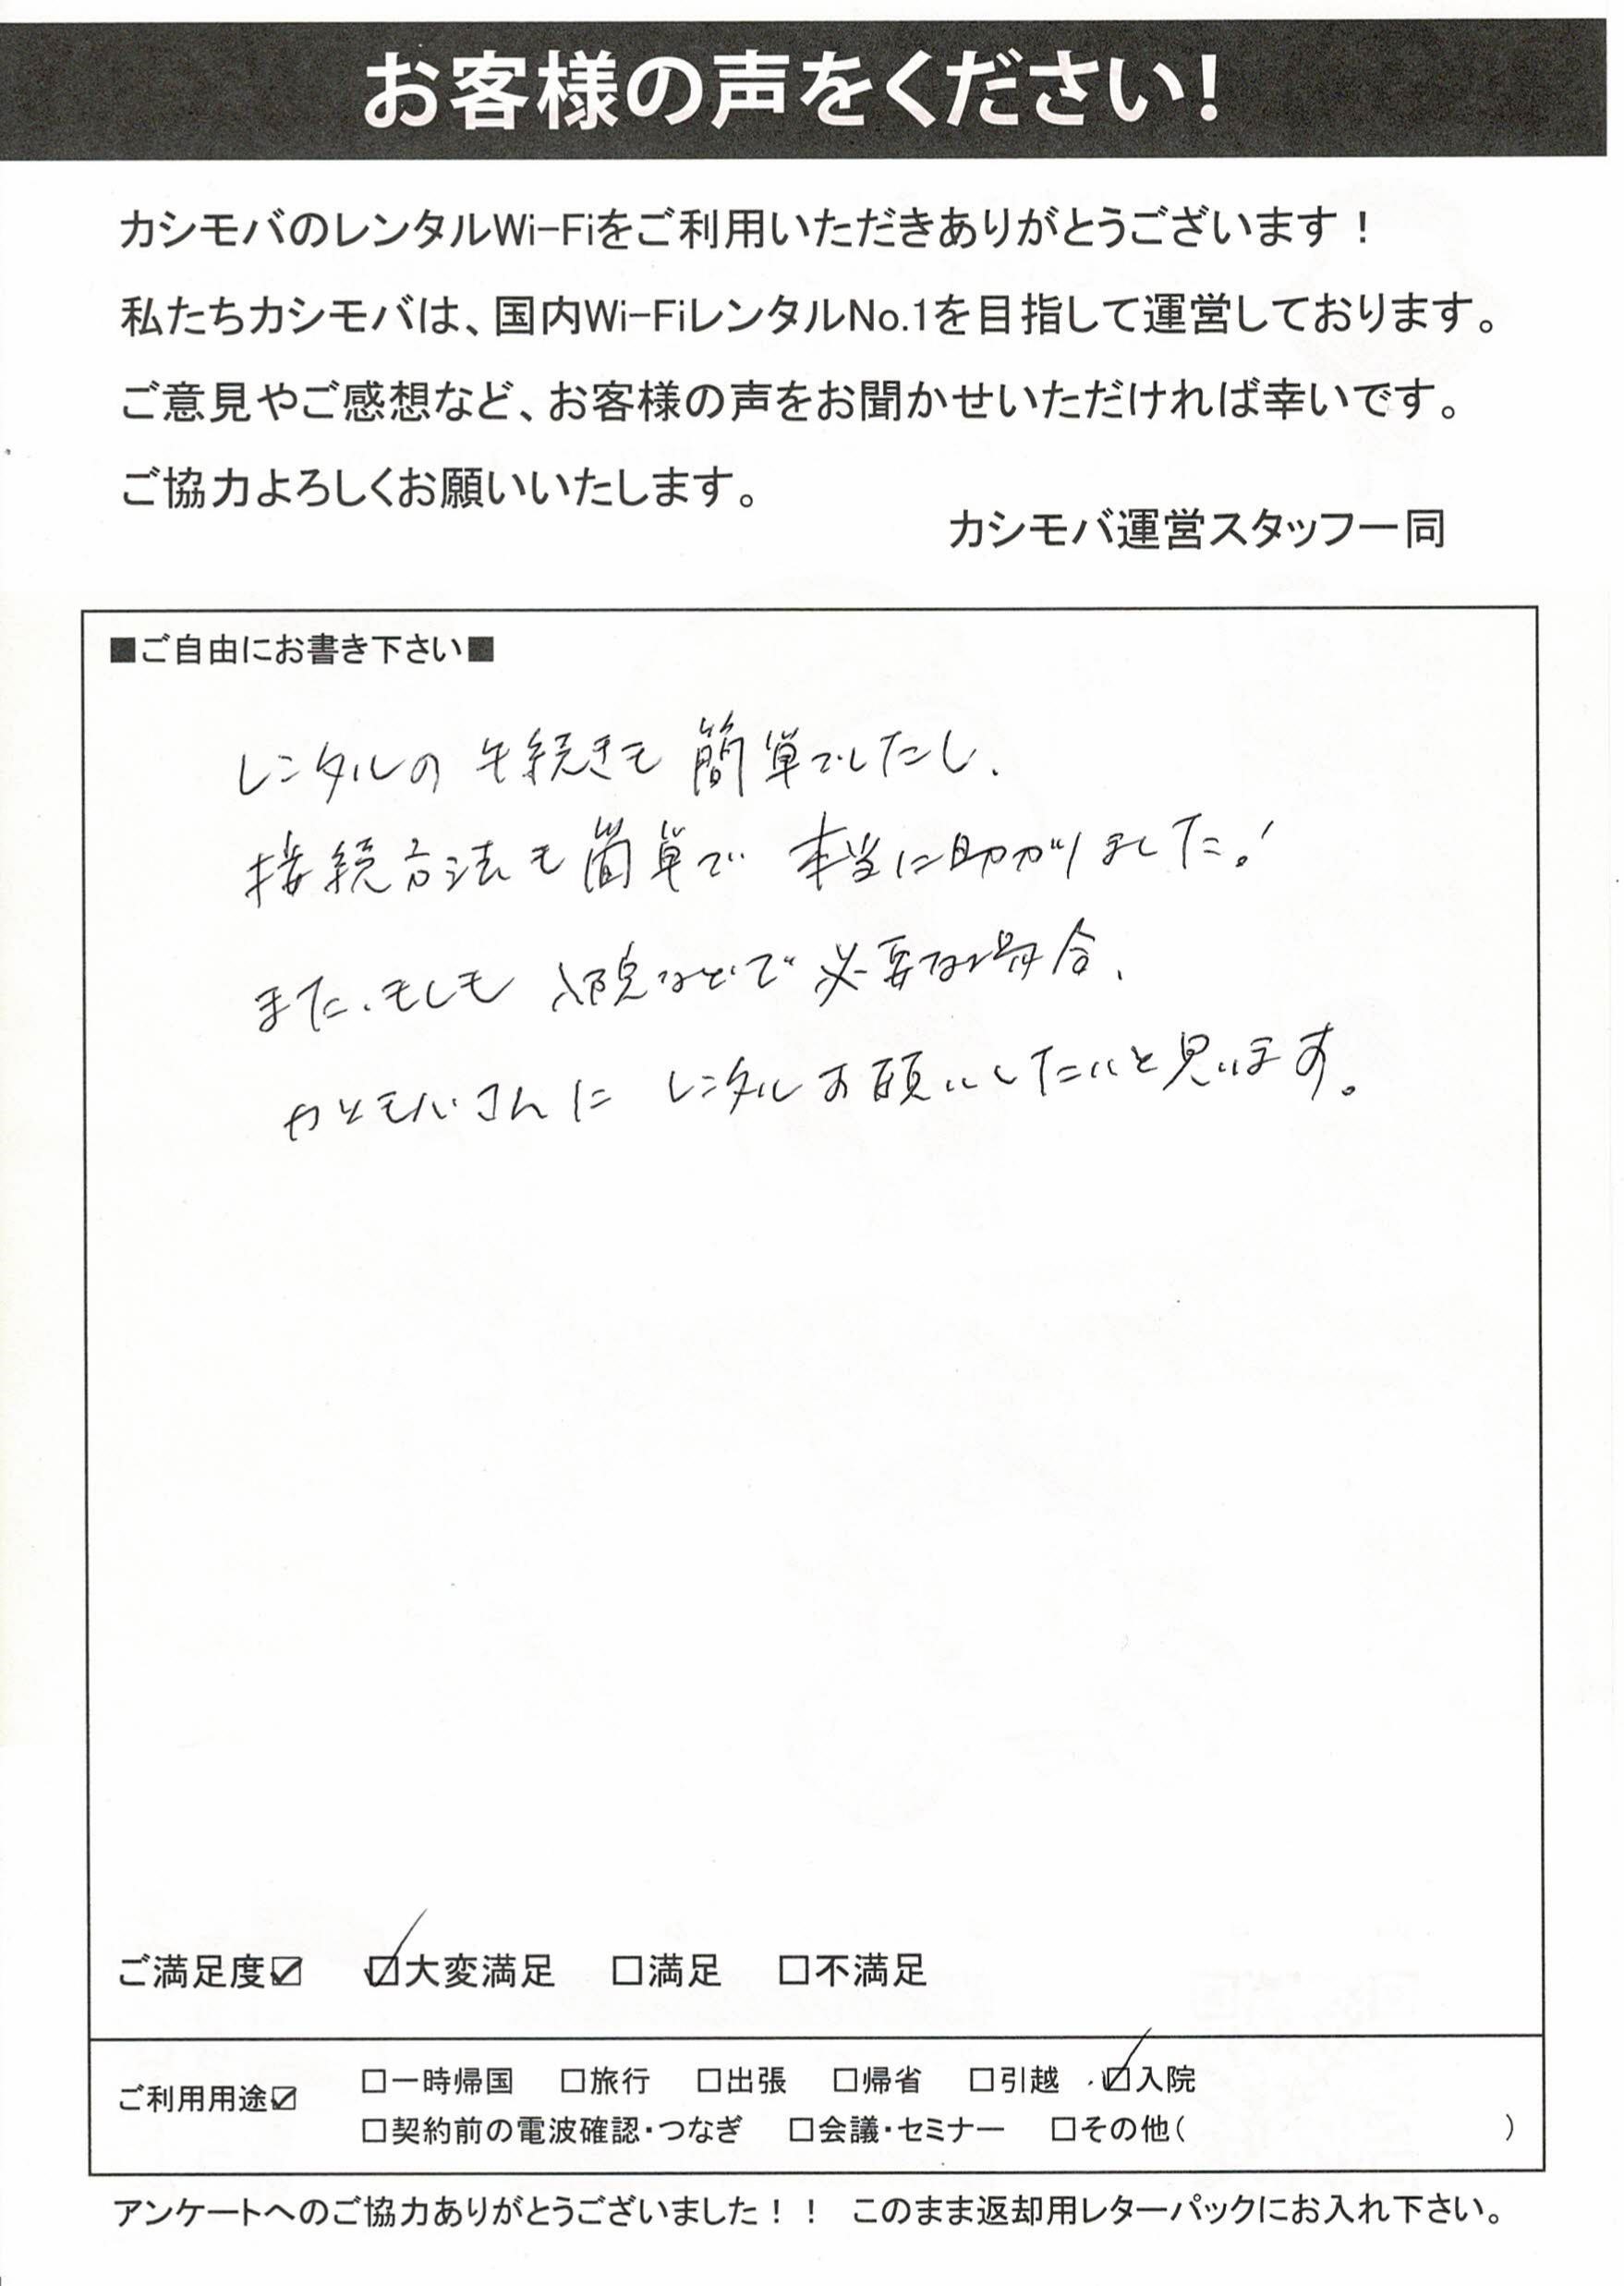 お客様の声をください!
カシモバのレンタルWi-Fiをご利用いただきありがとうございます！
私たちカシモバは、国内Wi-FiレンタルNo.1を目指して運営しております。
ご意見やご感想など、お客様の声をお聞かせいただければ幸いです。
ご協力よろしくお願いいたします。
カシモバ運営スタッフ一同
■ご自由にお書き下さい■
レンタルの手続きも簡単でしたし、
接続方法も簡単で本当に助かりました!
また、もしも入院などで必要な場合、
カシモバさんにレンタルお願いしたいと思います。
ご満足度☑ ☑大変満足 □満足 □不満足
ご利用用途☑ □一時帰国 □旅行 □出張 □帰省 □引越 ☑入院
□契約前の電波確認・つなぎ □会議・セミナー □その他( )
アンケートへのご協力ありがとうございました！！ このまま返却用レターパックにお入れ下さい。